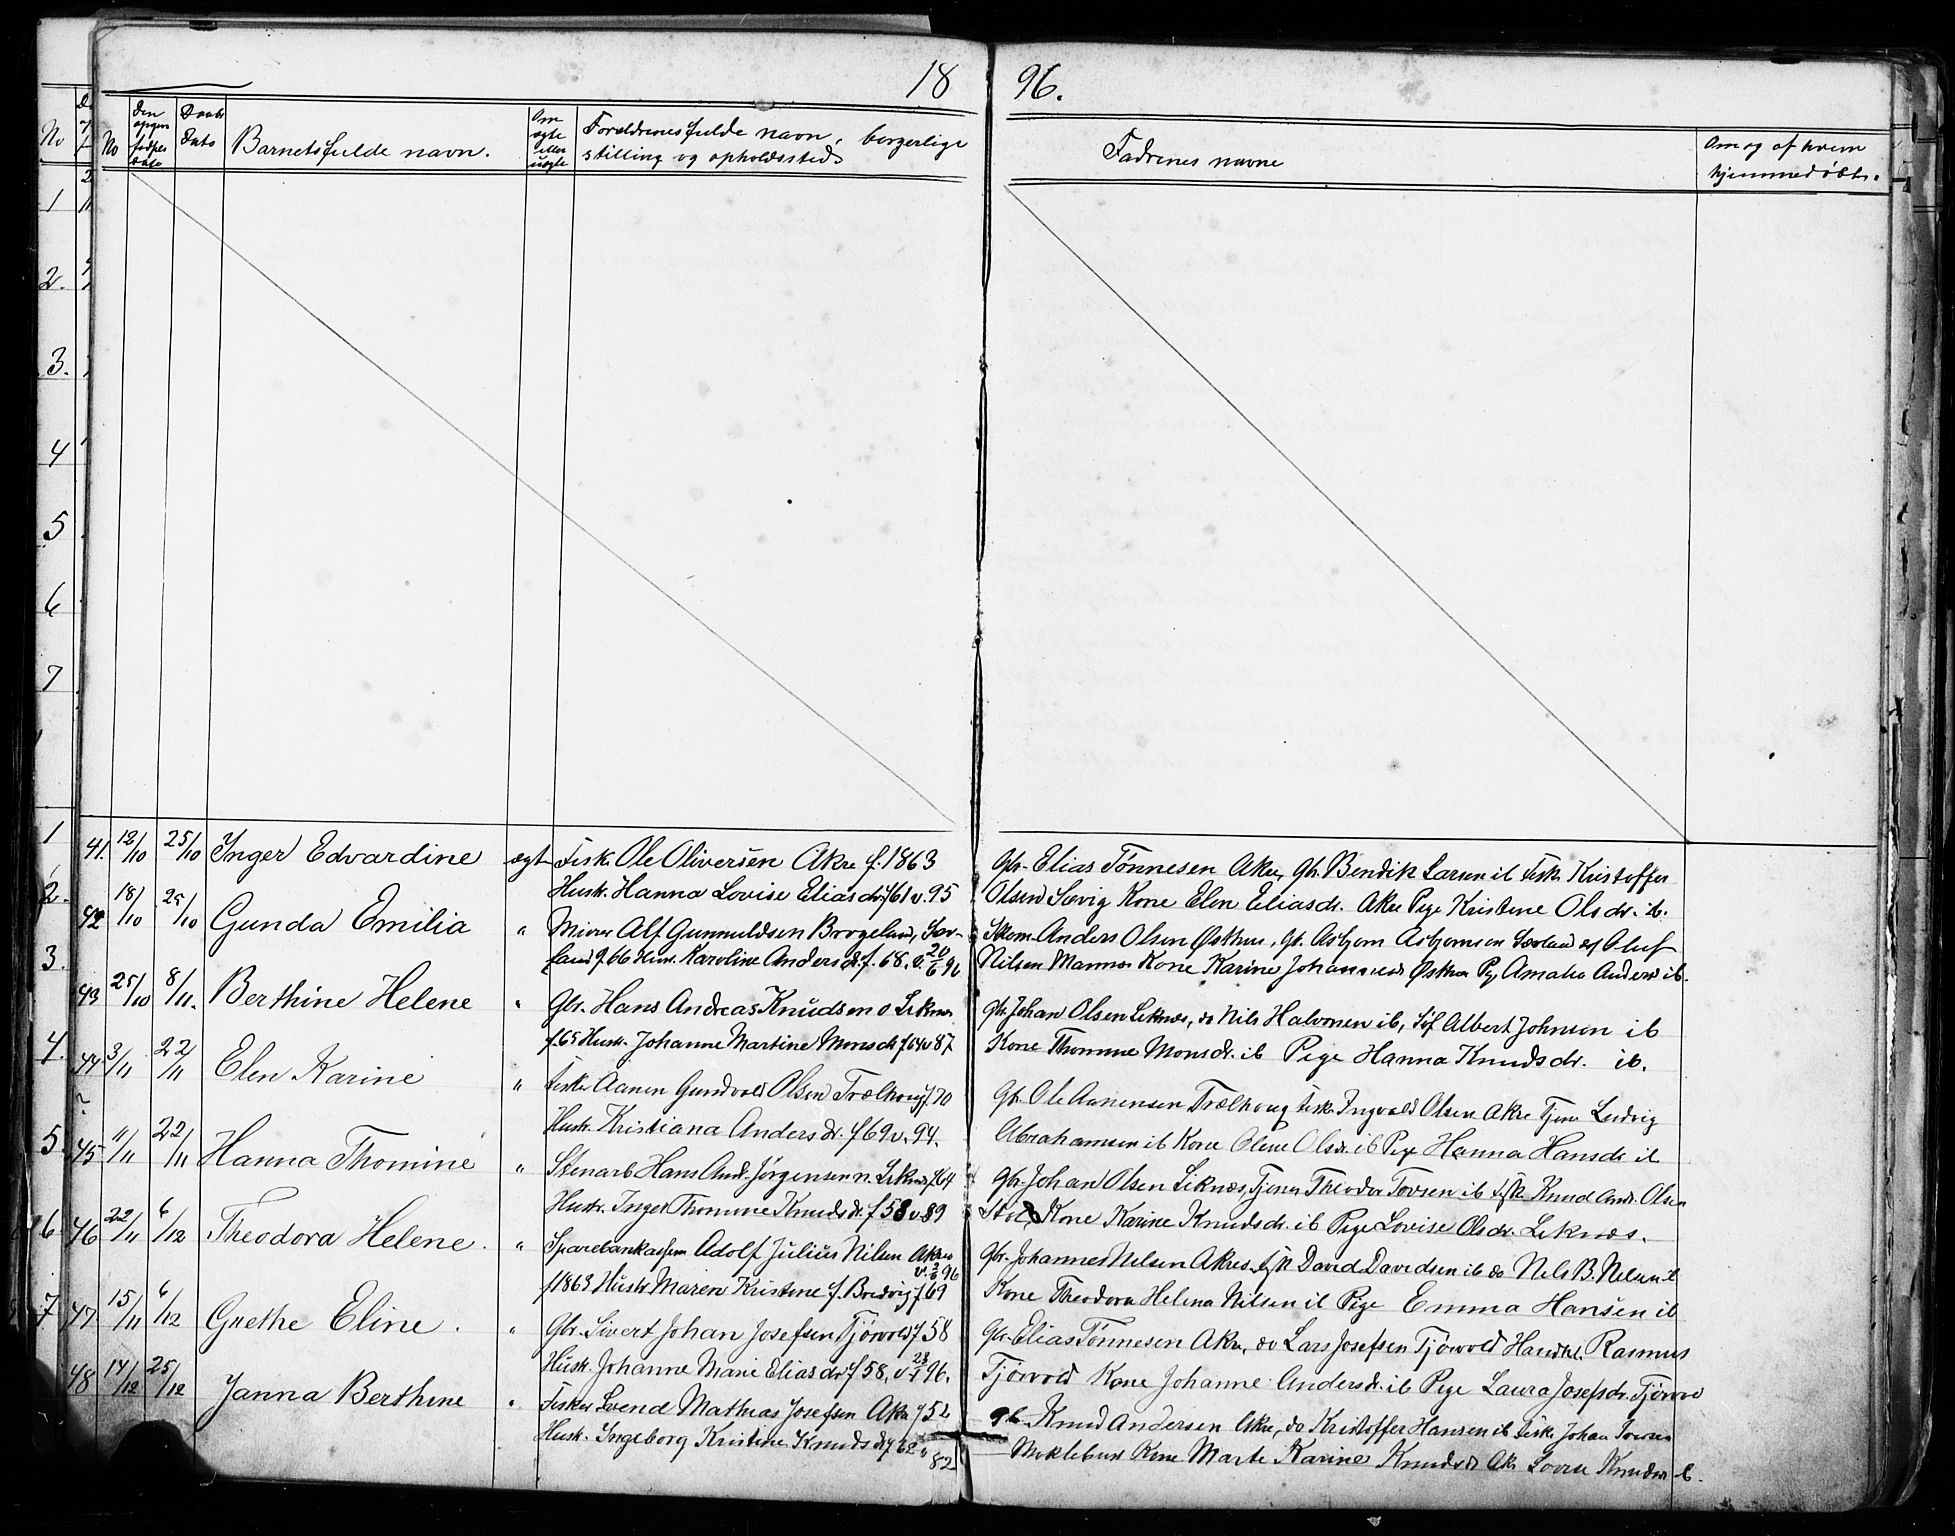 18 96.
No
Den opgivne fødselsdato
Daabs Dato
Barnets fulde navn.
Om ægte eller uægte
Forældrenes fulde navn, borgerlige
stilling og opholdssted
Fadrenes navne
Om og af hvem
hjemmedøbt.
41. 12/10 25/10 Inger Edvardine ægt Fisk. Ole Oliversen Akre f. 1863
Hustr. Hanna Lovise Eliasdr. f 61 v. 95
Gbr. Elias Tønnesen Akre, Gbr. Bendik Larsen ib Fisk. Kristoffer
Olsen Sævig Kone Elen Eliasdr. Akre Pige Kristine Olsdr. ib.
42 18/10 25/10 Gunda Emilia " Miner Alf Gunnuldsen Brogeland, Sæv-
land f. 66 Hust. Karoline Andersdr. f. 68. v. 20/6 96
Skom. Anders Olsen Østhus, Gb. Asbjørn Asbjørnsen Sævland Oluf
Nilsen Mannes Kone Karine Johannesd Østhus Pg Amalia Andersd ib.
43 25/10 8/11. Berthine Helene " Gbr. Hans Andreas Knudsen Liknes
f. 65 Hustr. Johanne Martine Monsdr f 64 v 87
Gbr Johan Olsen Liknæs, do Nils Halvorsen ib, Albert Johnsen ib
Kone Thomine Monsdr. ib Pige Hanna Knudsdr. ib.
44 3/11 22/11 Elen Karine " Fisker Aanen Gundvald Olsen Trælhoug f 70
Hustr. Kristiana Andersdr. f 69 v. 94.
Gb. Ole Aanensen Trælhoug Fisk Ingvald Olsen Akre Tjener Ludvig
Abrahamsen ib Kone Olene Olsdr. ib Pige Hanna Hansdr ib
45 11/11 22/11 Hanna Thomine " Stenarb Hans Andr. Jørgensen n. Likness f 64
Hustr. Inger Thomine Knudsdr. f 58 v. 89
Gbr. Johan Olsen Liknæs, Tjener Theodor Tovsen ib Fisk Knud Andr. Olsen
Kone Karine Knudsdr. ib Pige Lovise Olsdr. Liknæs.
46 22/11 6/12 Theodora Helene. " Sparebankass Adolf Julius Nilsen Akre
v. 2/6 96
f 1863 Hustr Maren Kristine f. Bredvig f 69
Gbr. Johannes Nilsen Akre, Fisk David Davidsen ib do Nils B. Nilsen ib
Kone Theodora Helena Nilsen ib Pige Emma Hansen ib
47 15/11 6/12 Grethe Eline. " Gbr. Sivert Johan Josefsen Tjøsvold f 58
Hustr. Johanne Marie Eliasdr f 58, v 96.
Gbr. Elias Tønnesen Akre, do Lars Josefsen Tjøsvold Handbl. Rasmus
Tjøsvold Kone Johanne Andersdr. ib Pige Laura Josefsdr. Tjøsvo
48 14/12 25/12 Janna Berthine " Fisker Svend Mathias Josefsen Akre f 52
Hustr. Ingeborg Kristine Knudsdr f 62 v 82
gb Knud Andersen Akre, do Kristoffer Hansen ib Fisk Johan
Meklebust Kone Marte Karine Knudsdr Akre Lovise Knudsdr ib.